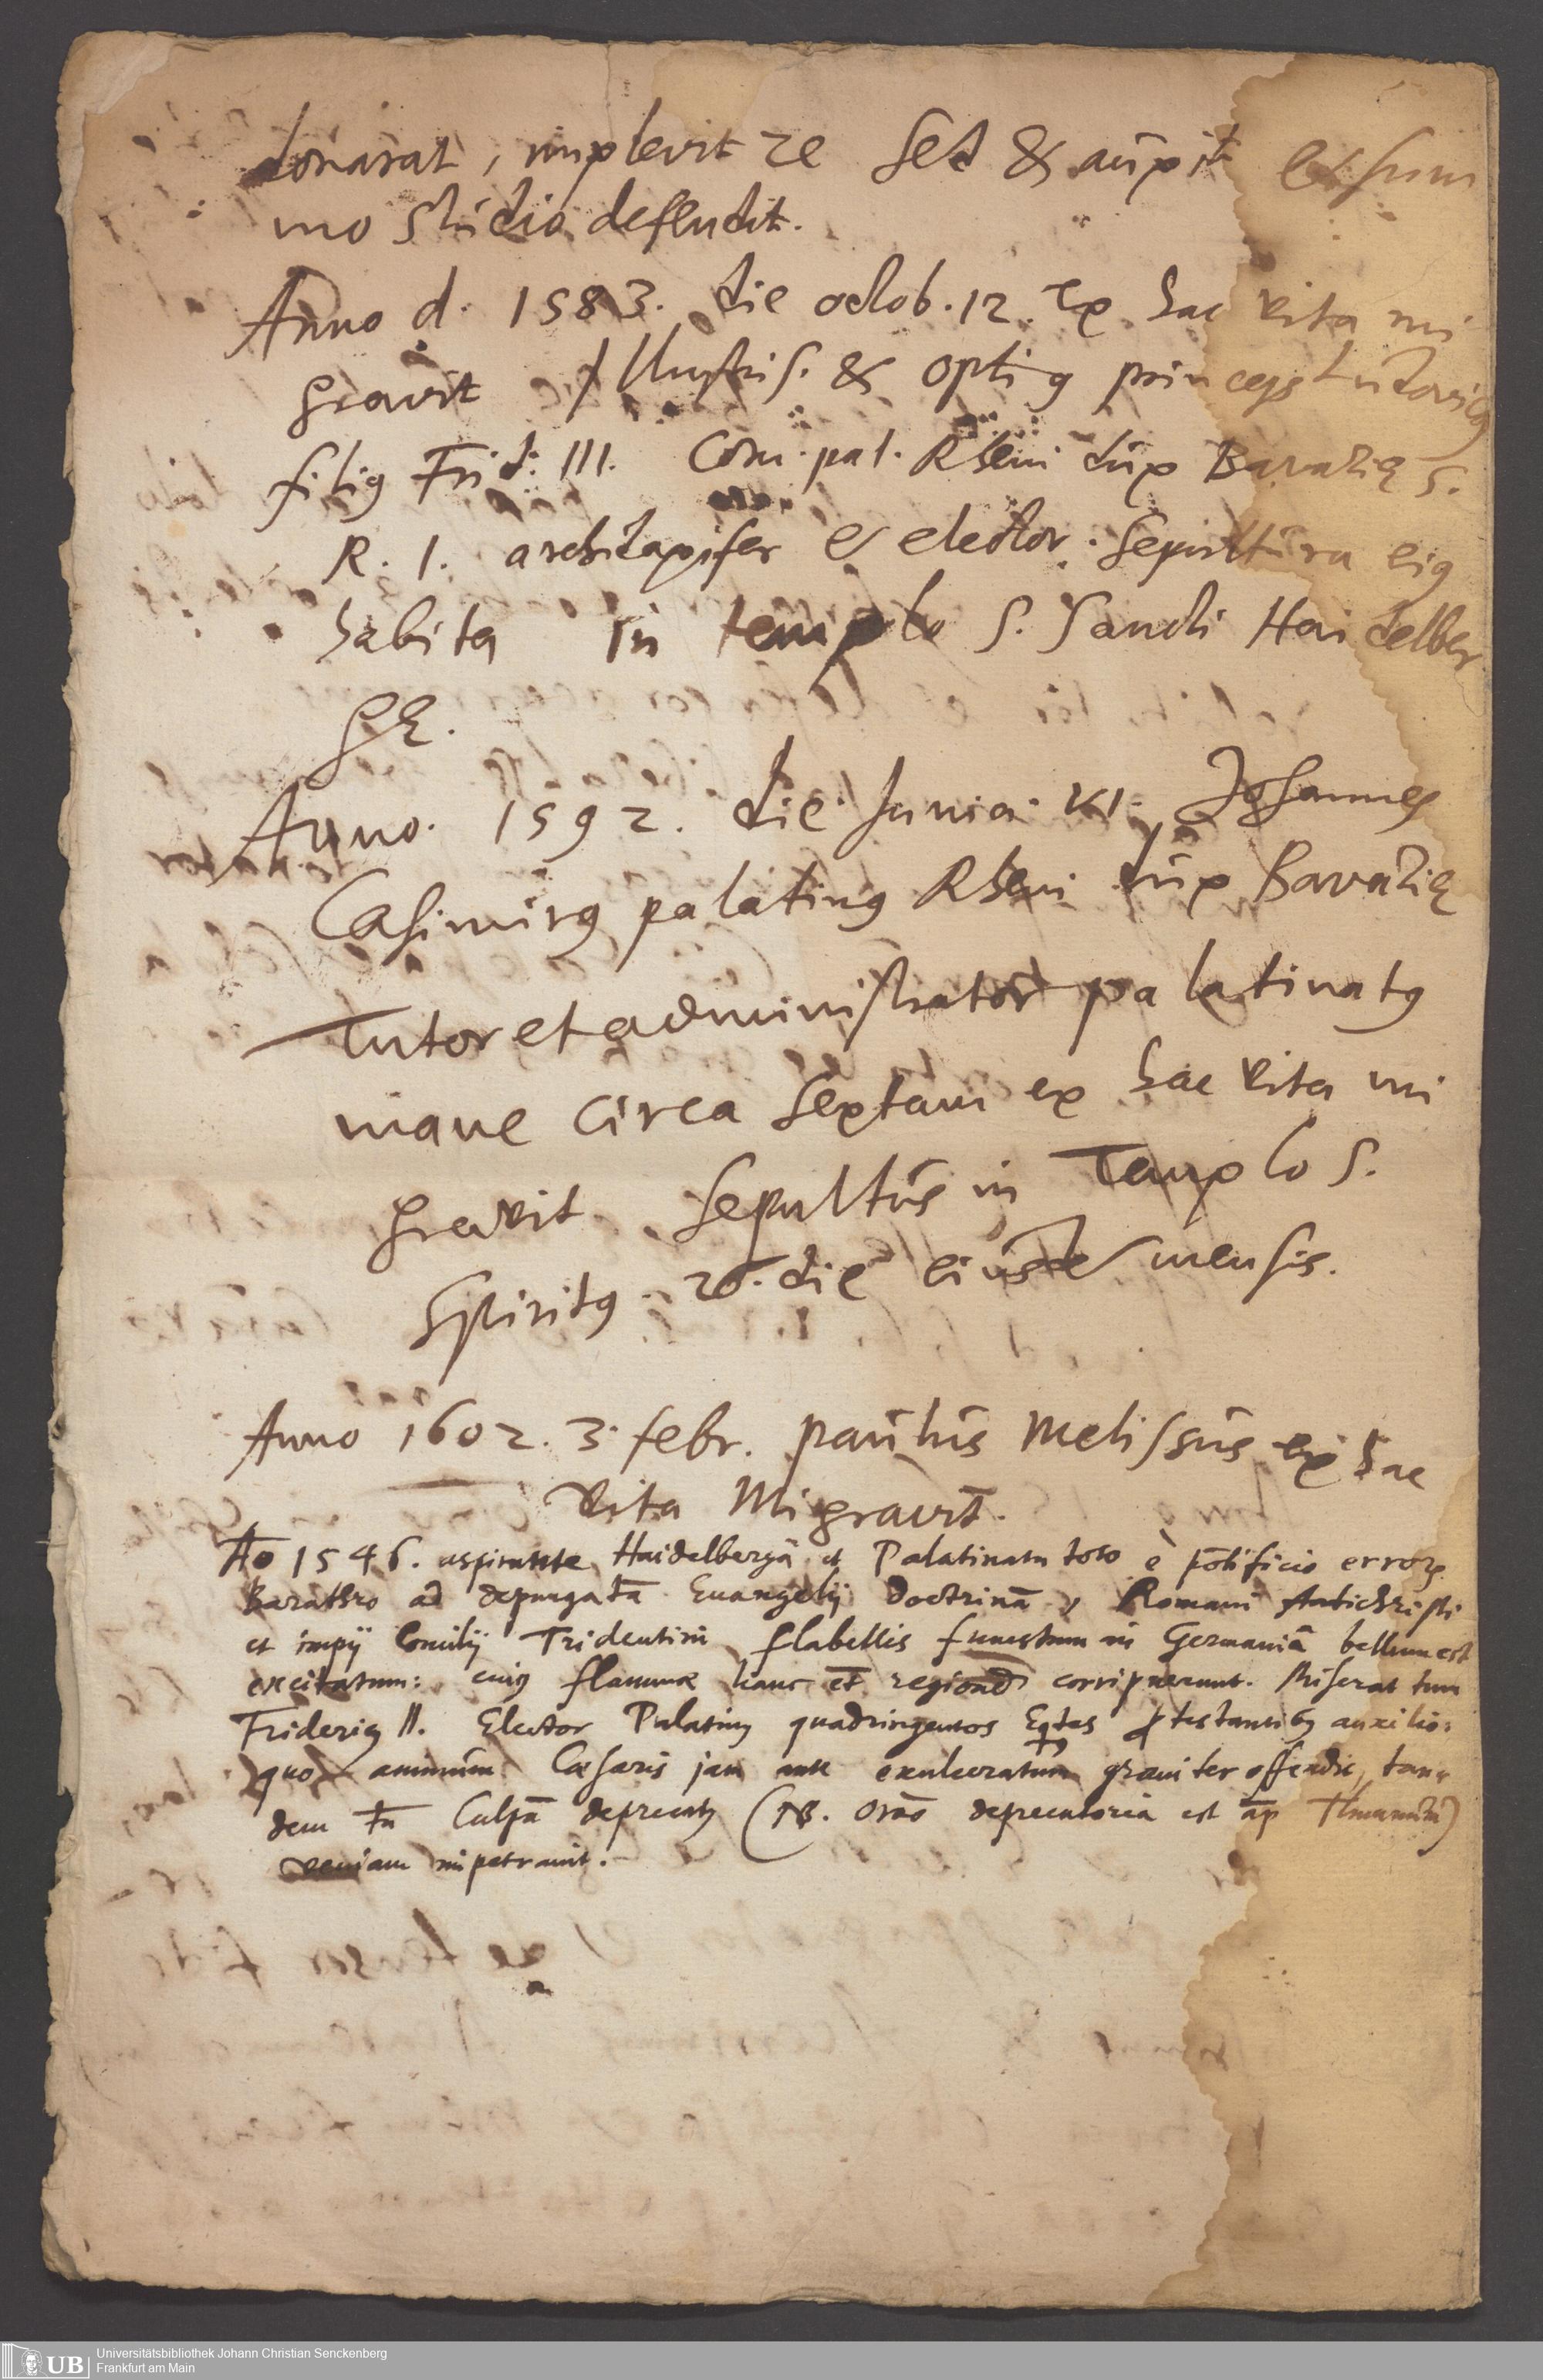 donarat, implevit re sed & auxit et sum
mo studio defendit.
Anno d. 1583. die octob. 12. ex hac vita mi
gravit Illustris. & optimꝰ princeps Ludovicꝰ
filiꝰ Frid: III. Com. pal. Rheni dux Bavarię S.
R. I. archidapifer & elector. Sepultura eiꝰ
habita in templo S. Sancti Haidelber
gę.
Anno. 1592. die Junia. VI. Johannes
Casimirꝰ palatinꝰ Rheni dux Bavarię
Tutor et administrator palatinatꝰ
mane circa sextam ex hac vita mi
gravit. Sepultus in Templo S.
Spiritꝰ. 26. die eiusdē mensis.
Anno 1602. 3. febr. paulus Melissus ex hac
vita Migravit.
Aō 1546. aspirante Haidelbergā et Palatinatu toto è pōtificio errorꝫ
Barathro ad depurgatā Evangelij doctrinā, Romani Antichristi
et impij Concilij Tridentini flabellis funestum in Germaniā bellum est
excitatum: cuiꝰ flammæ hanc et regionē corripuerunt. Miserat tum
Fridericꝰ II. Elector Palatinꝰ quadringentos Eqtes ꝓtestantibꝰ auxilio:
quo animum Cæsaris jam ante exulceratum graviter offendit, tan-
dem tn̄ Culpā deprecatꝰ (NB. orāo deprecatoria est ap̄ Thuanum)
veniam impetravit.
Universitätsbibliothek Johann Christian Senckenberg
Frankfurt am Main
UB